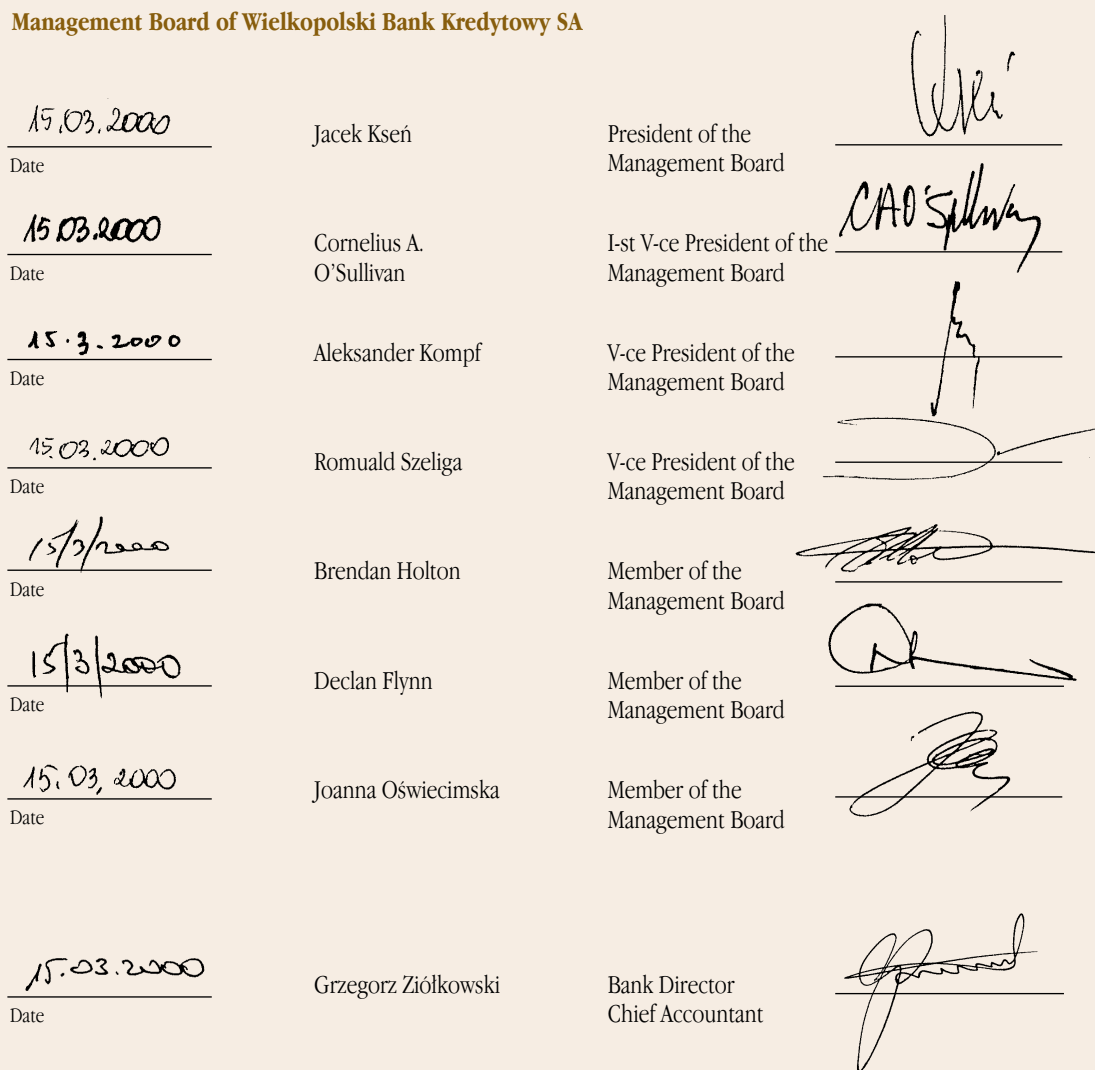 Management Board of Wielkopolski Bank Kredytowy SA
15.03.2000
Date
Jacek Kseń
President of the
Management Board
15.03.2000
Date
Cornelius A.
O'Sullivan
I-st V-ce President of the
Management Board
CAO'Sullivan
15.3.2000
Date
Aleksander Kompf
V-ce President of the
Management Board
15.03.2000
Date
Romuald Szeliga
V-ce President of the
Management Board
15/3/2000
Date
Brendan Holton
Member of the
Management Board
15/3/2000
Date
Declan Flynn
Member of the
Management Board
15.03,2000
Date
Joanna Oświecimska
Member of the
Management Board
15.03.2000
Date
Grzegorz Ziółkowski
Bank Director
Chief Accountant